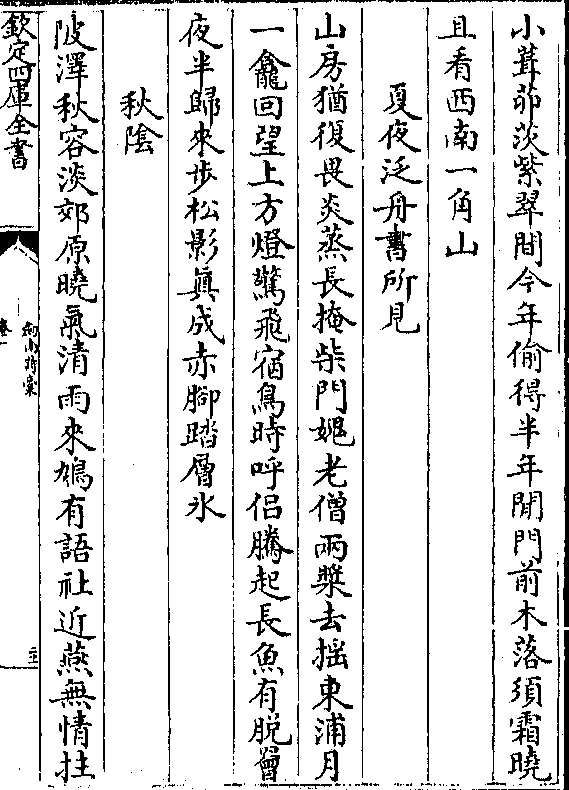 小葺茆茨紫翠間今年偷得半年閒門前木落須霜曉
且看西南一角山
夏夜泛舟書所見
山房猶復畏炎蒸長掩柴門媿老僧兩槳去揺東浦月
一龕回望上方燈驚飛宿鳥時呼侣騰起長魚有脱罾
夜半歸來步松影真成赤腳踏層氷
秋陰
陂澤秋容淡郊原曉氣清雨來鳩有語社近燕無情拄
欽定四庫全書
劒南詩槀
卷一